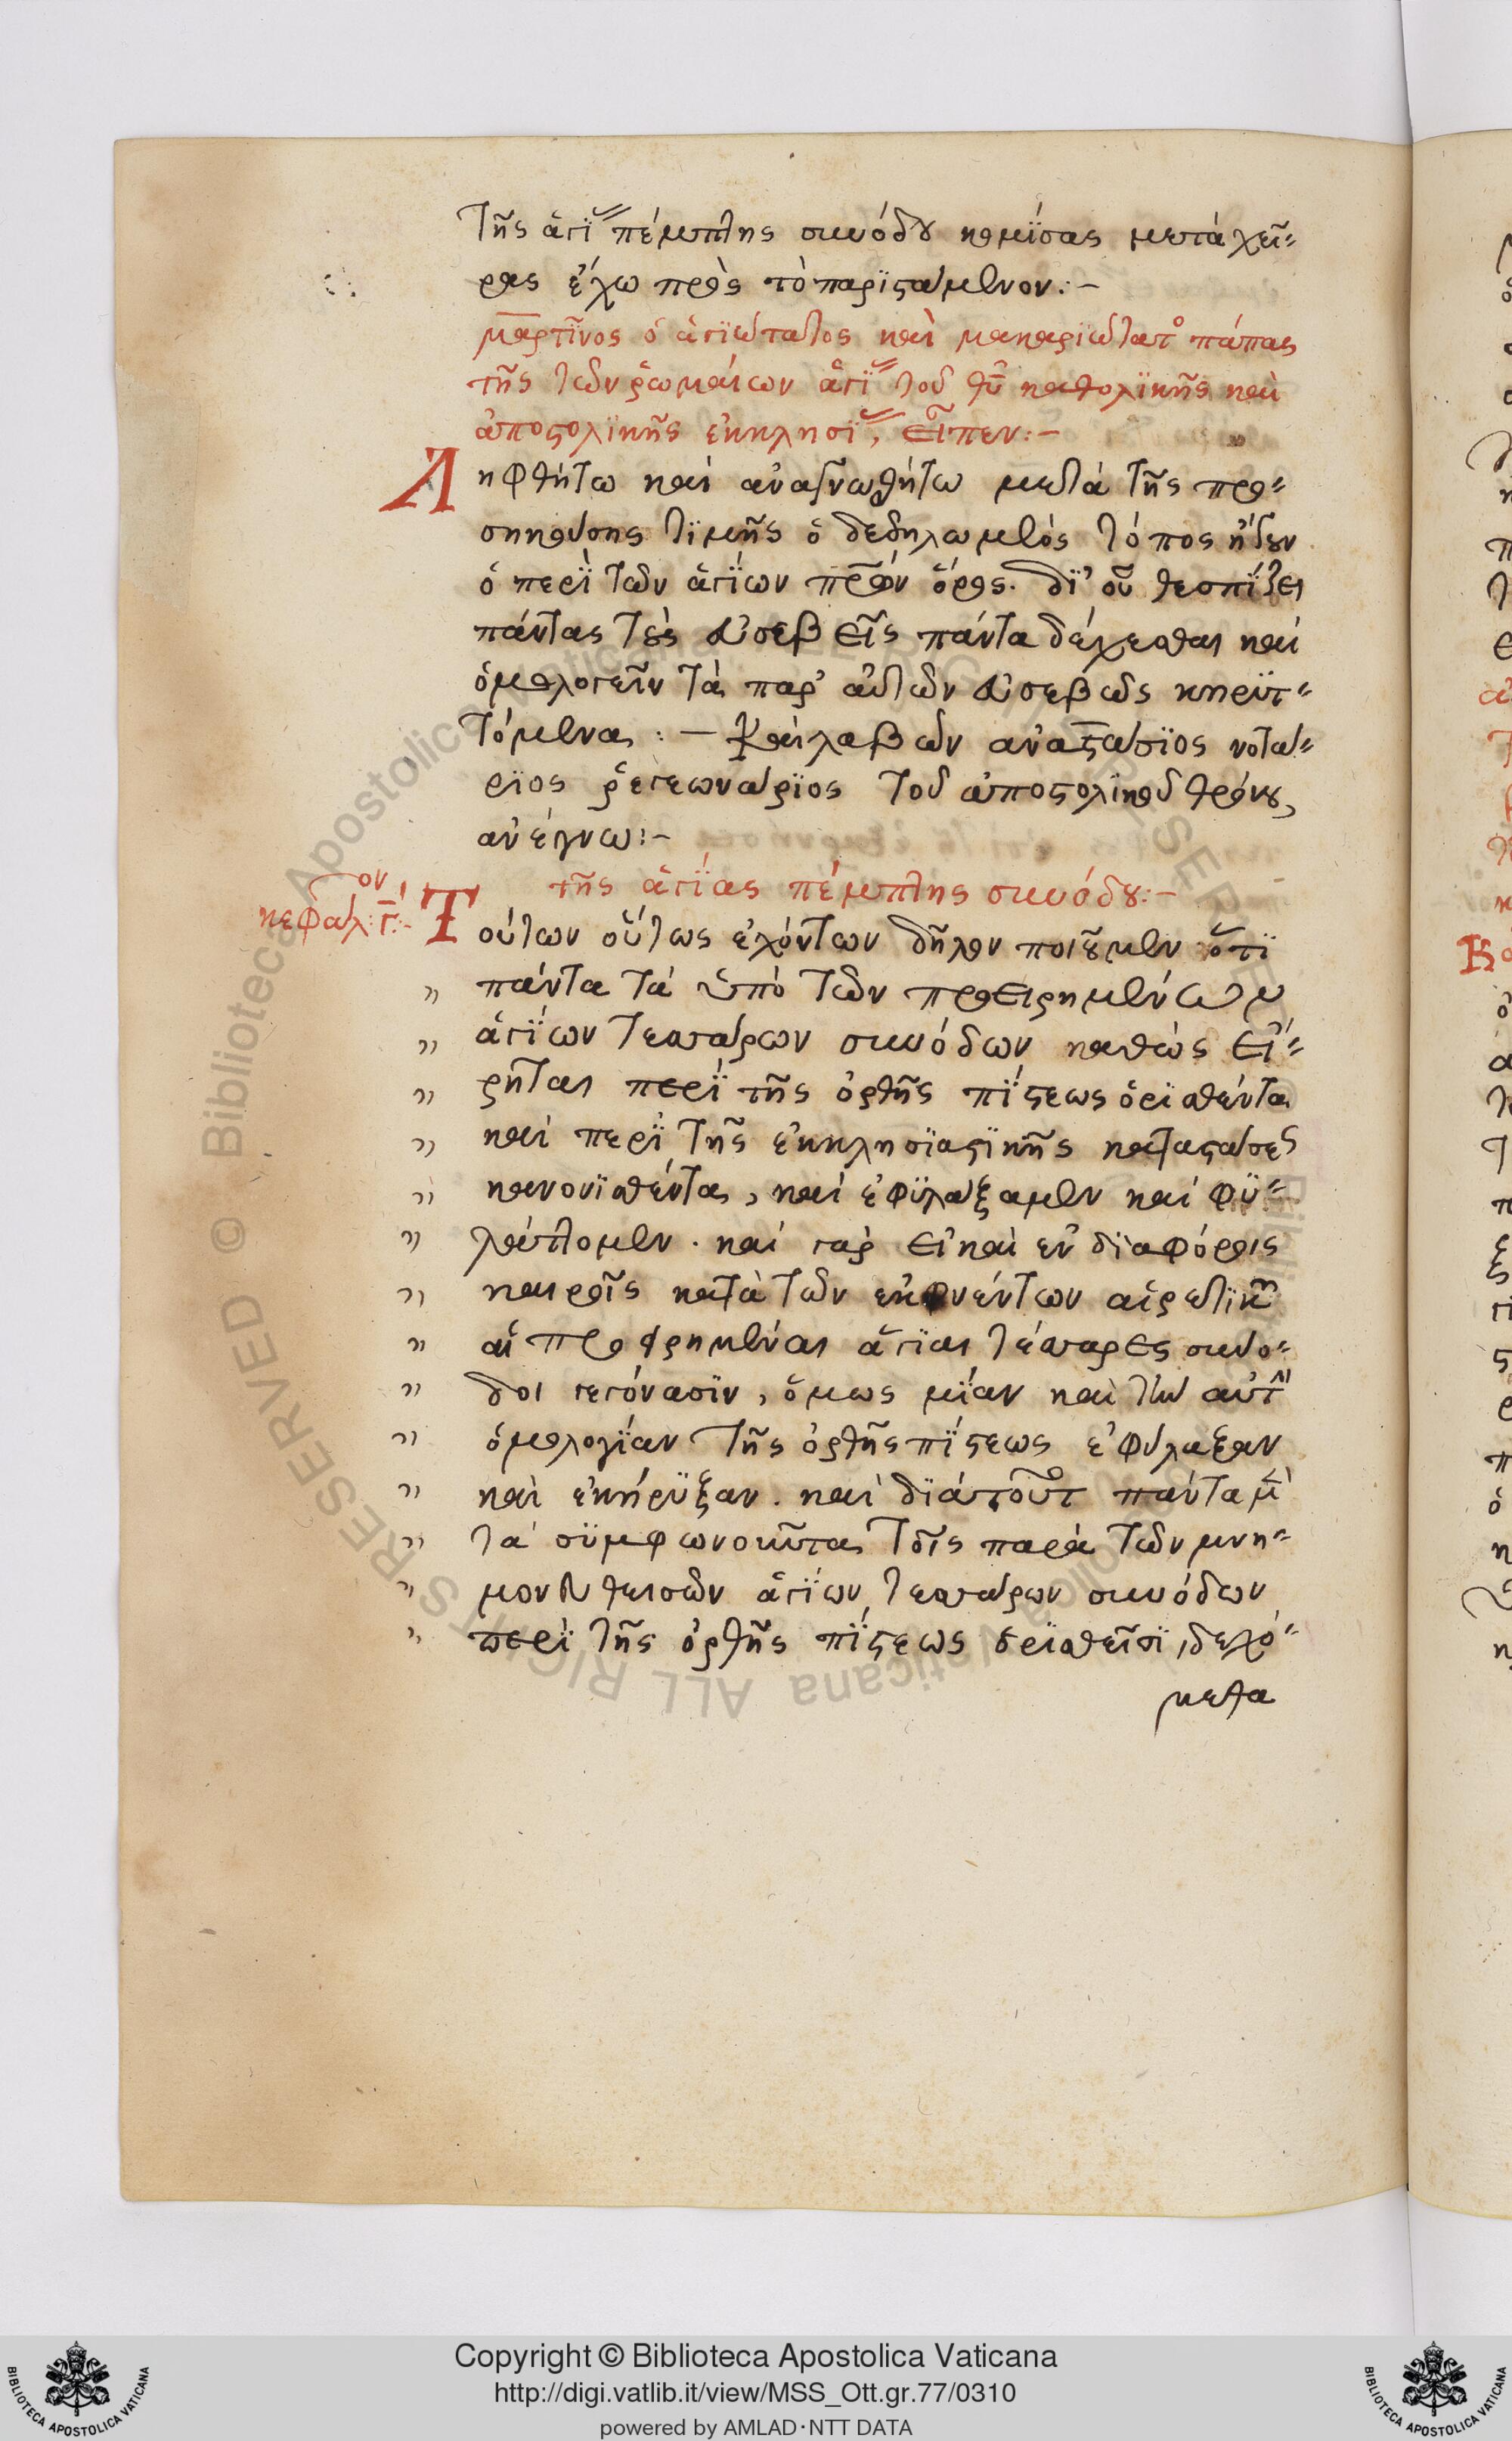 τῆς ἁγί πέμπτης συνόδου κομίσας μετὰ χεῖ-
ρας ἔχω πρὸς τὸ παριστάμενον:-
μαρτῖνος ὁ ἁγιώτατος καὶ μακαριώτατο πάπας
τῆς τῶν ῥωμαίων ἁγί τοῦ θυ καθολικῆς καὶ
ἀποστολικῆς ἐκκλησί, εἶπεν:-
Ληφθήτω καὶ ἀναγνωσθήτω μετὰ τῆς προ-
σηκούσης τιμῆς ὁ δεδηλωμένος τόπος ἤγουν
ὁ περὶ τῶν ἁγίων πρων ὅρος. δι' οὗ θεσπίζει
πάντας τοὺς εὐσεβεῖς πάντα δέχεσθαι καὶ
ὁμολογεῖν τὰ παρ' αὐτῶν εὐσεβῶς κηρυτ-
τόμενα:- Καὶ λαβὼν ἀναστάσιος νοτά-
ριος ῥεγεωνάριος τοῦ ἀποστολικοῦ θρόνου,
ἀνέγνω:-
τῆς ἁγίας πέμπτης συνόδου:-
κεφάλον γ:-
Τούτων οὕτως ἐχόντων δῆλον ποιοῦμεν ὅτι
πάντα τὰ ὑπὸ τῶν προειρημένων
ἁγίων τεσσάρων συνόδων καθὼς εἴ-
ρηται περὶ τῆς ὀρθῆς πίστεως ὁρισθέντα
καὶ περὶ τῆς ἐκκλησιαστικῆς καταστάσε
κανονισθέντα, καὶ ἐφυλάξαμεν καὶ φυ-
λάττομεν. καὶ γὰρ εἰ καὶ ἐν διαφόροις
καιροῖς κατὰ τῶν ἐκφυέντων αἱρετικῶν
αἱ προειρημέναι ἅγιαι τέσσαρες συνο-
δοι γεγόνασιν, ὅμως μίαν καὶ τὴν αὐτὴν
ὁμολογίαν τῆς ὀρθῆς πίστεως ἐφύλαξαν
καὶ ἐκήρυξαν. καὶ διὰ τοῦτο πάντα μὲν
τὰ συμφωνοῦντα τοῖς παρὰ τῶν μνη-
μονευθεισῶν ἁγίων τεσσάρων συνόδων
περὶ τῆς ὀρθῆς πίστεως ὁρισθεῖσι, δεχό-
μεθα
Copyright © Biblioteca Apostolica Vaticana
http://digi.vatlib.it/view/MSS_Ott.gr.77/0310
powered by AMLAD·NTT DATA